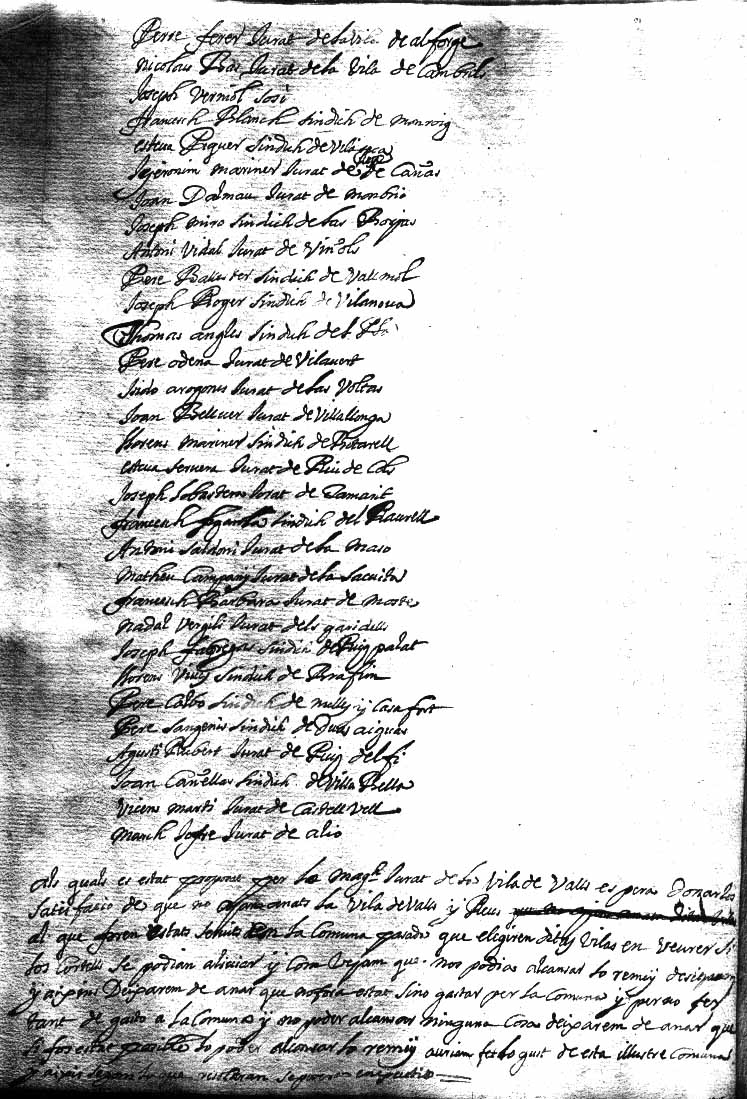 Pere ferer Jurat de la vila de alforge
Nicolau Bas Jurat de la Vila de Cambrils
Joseph Vermol Sosi
francesch Blanch sindich de monroig
esteva Piquer Sindich de Vilaseca
Jeronim mariner Jurat de de Cañas
Joan Dalmau Jurat de monbrio
Joseph miro Sindich de las Borjas
Antoni Vidal Jurat de Viñols
Pere Balester sindich de Vallmol
Joseph Roger Sindich de Vilanova
Thomas angles Sindich del
Pere odena Jurat de Vilavert
Isido aragones Jurat de las Voltas
Joan Bellver Jurat de Villallonga
llorens mariner Sindich de Rotarell
esteva servera Jurat de Riu de Cols
Joseph Jurat de Tamarit
francesch sindich del Raurell
Antoni Saldoni Jurat de la Maso
Matheu Company Jurat de la Secuita
francesch Barbara Jurat de
nadal Vergili Jurat dels garidells
Joseph fabregas Sindich de Puig palat
llorens Sindich de Brafim
Pere Calbo Sindich de nulles y Casafort
Pere Sangenis Sindich de Duas aiguas
Agusti Rubert Jurat de Puig del fi
Joan Cañellas Sindich de Villa Bella
Vicens marti Jurat de Castell Vell
March Jofre Jurat de alio
als quals es estat proposat per lo magch Jurat de la Vila de Valls es pera Donarlos
satisfacio de que no anats la Vila de Valls y Reus
al que foren estats en la Comuna pasada que elegiren ditas Vilas en veurer si
los Cortells se podian aliviar y Com vejam que nos podia alcansar lo remey
y Deixarem de anar que no fora estat sino gastar per la Comuna y per no fer
tant de gasto a la Comuna y no poder alcansar ninguna Cosa deixarem de anar que
si fos estat posible lo poder alcansar lo remey auriem fet lo gust de esta illustre Comuna